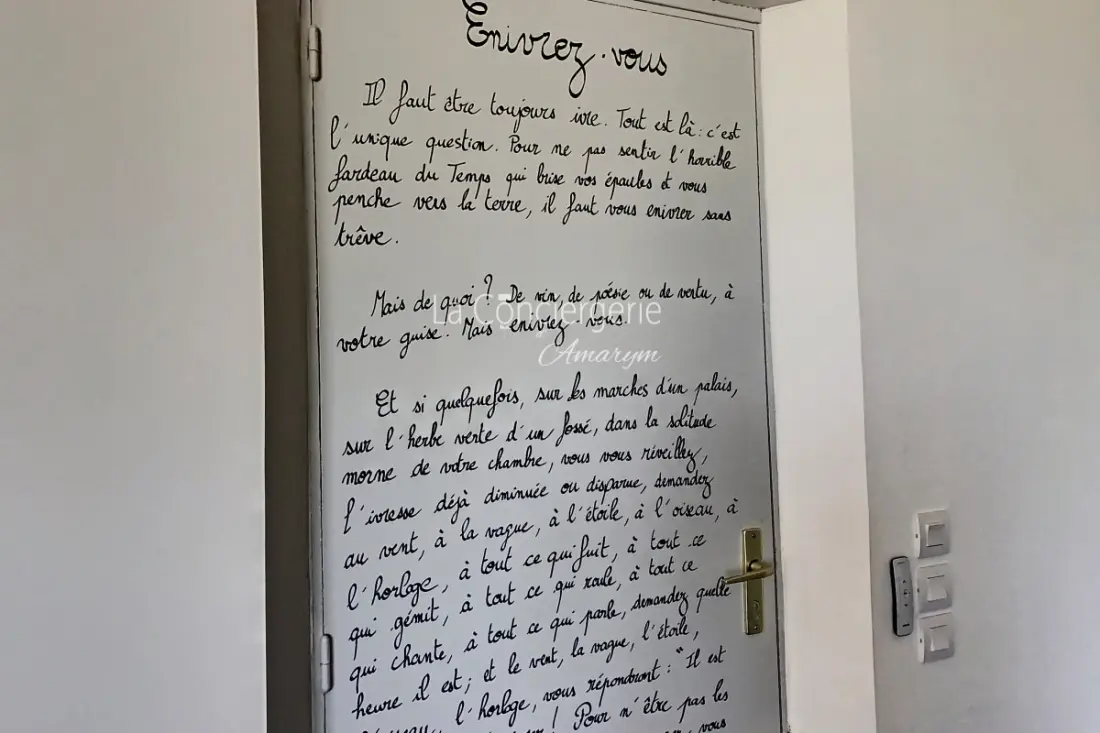 Enivrez-vous
Il faut être toujours ivre. Tout est là : c'est
l'unique question. Pour ne pas sentir l'horrible
fardeau du Temps qui brise vos épaules et vous
penche vers la terre, il faut vous enivrer sans
trêve.
Mais de quoi ? De vin, de poésie ou de vertu, à
votre guise. Mais enivrez-vous.
La Conciergerie
Amarym
Et si quelquefois, sur les marches d'un palais,
sur l'herbe verte d'un fossé, dans la solitude
morne de votre chambre, vous vous réveillez,
l'ivresse déjà diminuée ou disparue, demandez
au vent, à la vague, à l'étoile, à l'oiseau, à
l'horloge, à tout ce qui fuit, à tout ce
qui gémit, à tout ce qui roule, à tout ce
qui chante, à tout ce qui parle, demandez quelle
heure il est ; et le vent, la vague, l'étoile,
l'horloge, vous répondront : "Il est
! Pour n'être pas les
vous